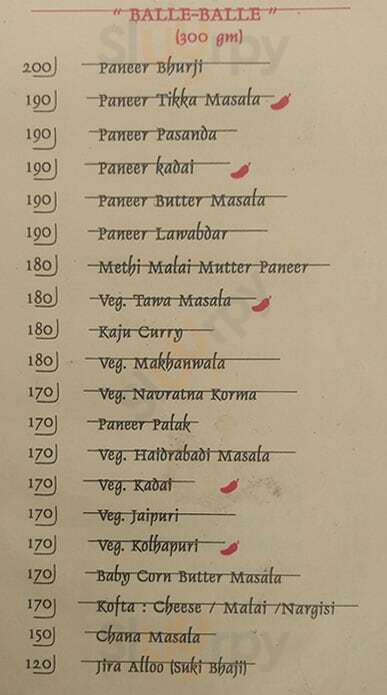 " BALLE-BALLE "
(300 gm)
200 Paneer Bhurji
190 Paneer Tikka Masala
190 Paneer Pasanda
190 Paneer kadai
190 Paneer Butter Masala
190 Paneer Lawabdar
180 Methi Malai Mutter Paneer
180 Veg. Tawa Masala
180 Kaju Curry
180 Veg. Makhanwala
170 Veg. Navratna Korma
170 Paneer Palak
170 Veg. Haidrabadi Masala
170 Veg. Kadai
170 Veg. Jaipuri
170 Veg. Kolhapuri
170 Baby Corn Butter Masala
170 Kofta : Cheese / Malai /Nargisi
150 Chana Masala
120 Jira Alloo (Suki Bhaji)